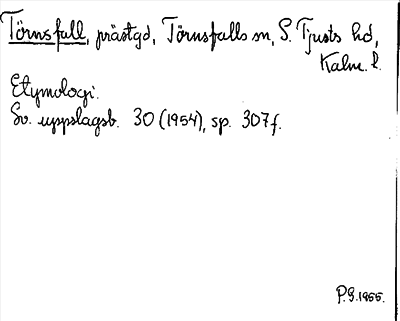 Törnsfall, prästgd, Törnsfalls sn, S. Tjusts hd,
Kalm. l.
Etymologi.
Sv. uppslagsb. 30 (1954), sp. 307 f.
P.G. 1955.